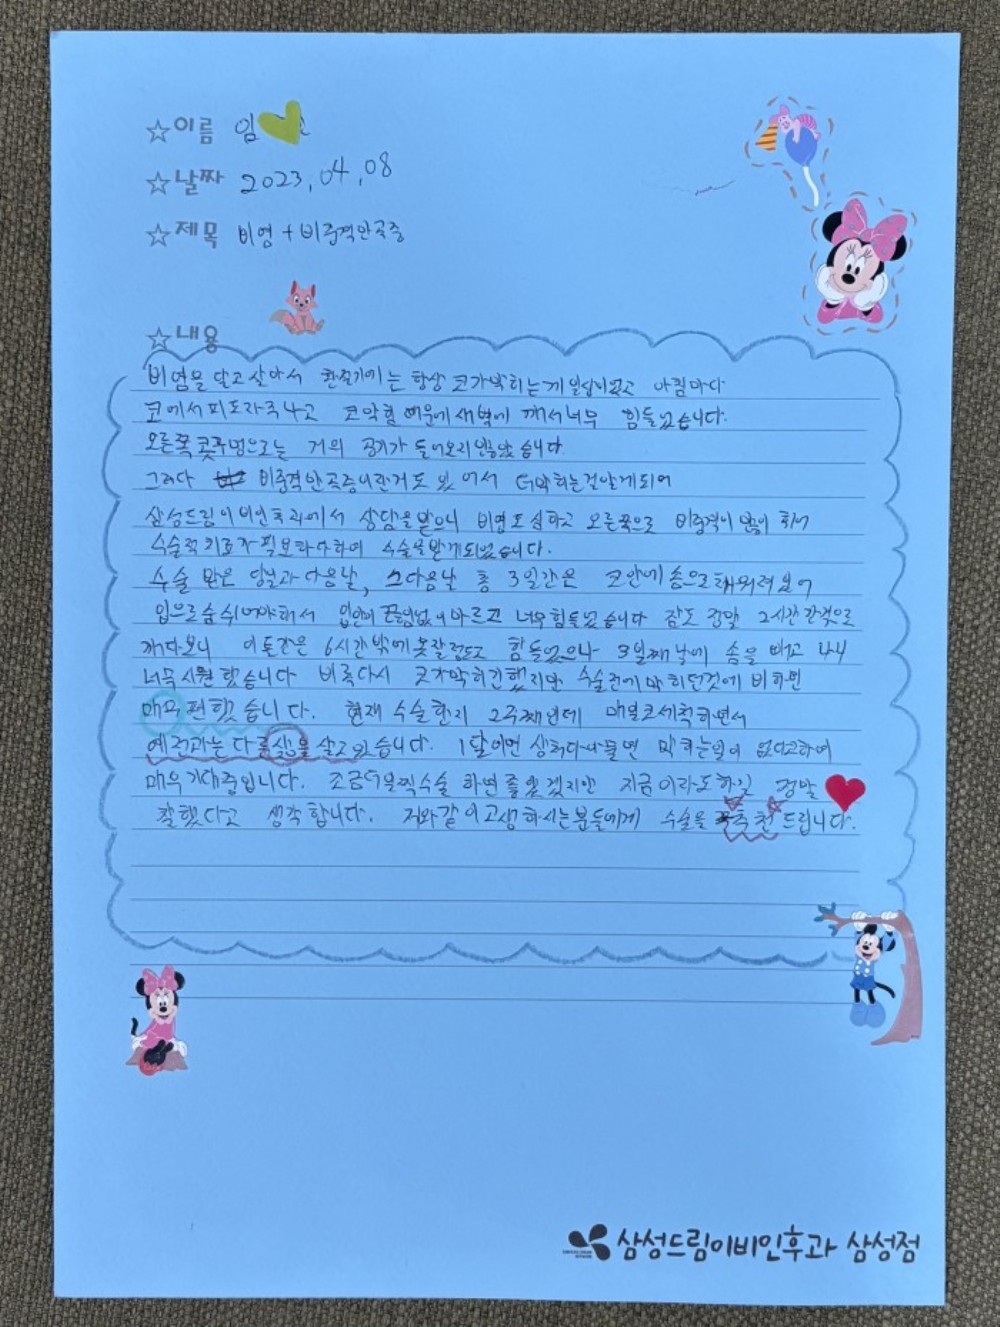 ☆이름 임
☆날짜 2023.04.08
☆제목 비염 + 비중격만곡증
☆내용
비염을 달고 살아서 환절기에는 항상 코가막히는게 일상이었고 아침마다
코에서 피도자주나고 코막힘 때문에 새벽에 깨서 너무 힘들었습니다.
오른쪽 콧구멍으로는 거의 공기가 들어오지않았습니다.
그러다 비중격만곡증이란거도 있어서 더막히는걸알게되어
삼성드림이비인후과에서 상담을 받으니 비염도심하고 오른쪽으로 비중격이 많이 휘어
수술적치료가 필요하다하여 수술을받게되었습니다.
수술 받은 당일과 다음날, 그다음날 총 3일간은 코안에 솜으로채워져있어
입으로숨쉬어야해서 입안이 끝없이마르고 너무힘들었습니다 잠도 정말 2시간잔것으로
깨다보니 이틀간은 6시간밖에못잘정도로 힘들었으나 3일째날에 솜을 빼고 나서
너무시원했습니다 비록다시 코가막히긴했지만 수술전에막히던것에 비하면
매우편했습니다. 현재 수술한지 2주째인데 매일코세척하면서
예전과는 다른삶을 살고있습니다. 1달이면 상처다나으면 막히는일이 없다고하여
매우기대중입니다. 조금더일찍수술 하면좋았겠지만 지금이라도하길 정말
잘했다고 생각합니다. 저와같이고생하시는분들에게 수술을 추천드립니다.
삼성드림이비인후과 삼성점